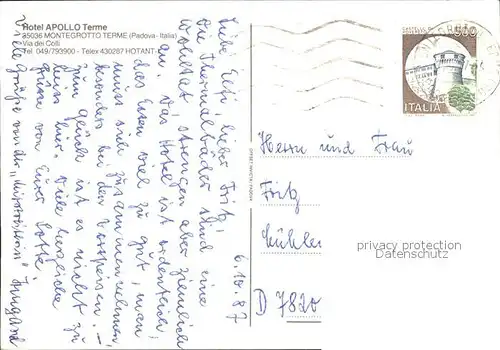 Hotel APOLLO Terme
35036 MONTEGROTTO TERME (Padova - Italia)
Via dei Colli
Tel. 049/793900 - Telex 430287 HOTANT
6.10.87
Liebe Elfi, lieber Fritz!
Die Thermalbäder sind eine
Wohltat, strengen aber ziemlich
an. Das Hotel ist ordentlich,
das Essen viel zu gut, man
muss sich zusammennehmen,
besonders bei den Vorspeisen. –
Zum Glück ist es nicht zu
heiss hier. Viele herzliche
Grüsse von Eurer Lotte.
Viele Grüße von der
Irmgard
500
ITALIA
Herrn und Frau
Fritz
Kühler
D 7820
privacy protection
Danatorius